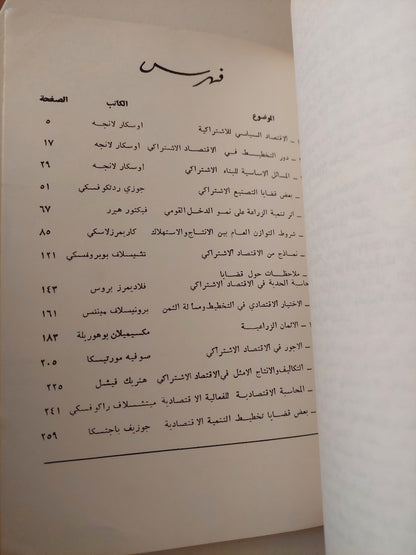 فهرس
الموضوع الكاتب الصفحة
١ ـ الاقتصاد السياسي للاشتراكية اوسكار لانجه ٥
ـ دور التخطيط في الاقتصاد الاشتراكي اوسكار لانجه ١٧
ـ المسائل الاساسية للبناء الاشتراكي اوسكار لانجه ٢٩
ـ بعض قضايا التصنيع الاشتراكي جوزي ردتكوفسكي ٥١
ـ اثر تنمية الزراعة على نمو الدخل القومي فيكتور هيرر ٦٧
ـ شروط التوازن العام بين الانتاج والاستهلاك كازيمرزلاسكي ٨٥
ـ نماذج من الاقتصاد الاشتراكي تشيسلاف بوبروفسكي ١٢١
ـ ملاحظات حول قضايا
حاسة الحدية في الاقتصاد الاشتراكي فلاديمرز بروس ١٤٣
ـ الاختيار الاقتصادي في التخطيط ومسألة الثمن برونيسلاف مينتس ١٦١
١ ـ الاثمان الزراعية مكسيميلان بوهوريلة ١٨٣
ـ الاجور في الاقتصاد الاشتراكي صوفيه مورئيسكا ٢٠٥
ـ التكاليف والانتاج الامثل في الاقتصاد الاشتراكي هنريك فيشل ٢٢٥
ـ المحاسبة الاقتصادية للفعالية الاقتصادية ميتشسلاف راكوفسكي ٢٤١
ـ بعض قضايا تخطيط التنمية الاقتصادية جوزيف باجتسكا ٢٥٩